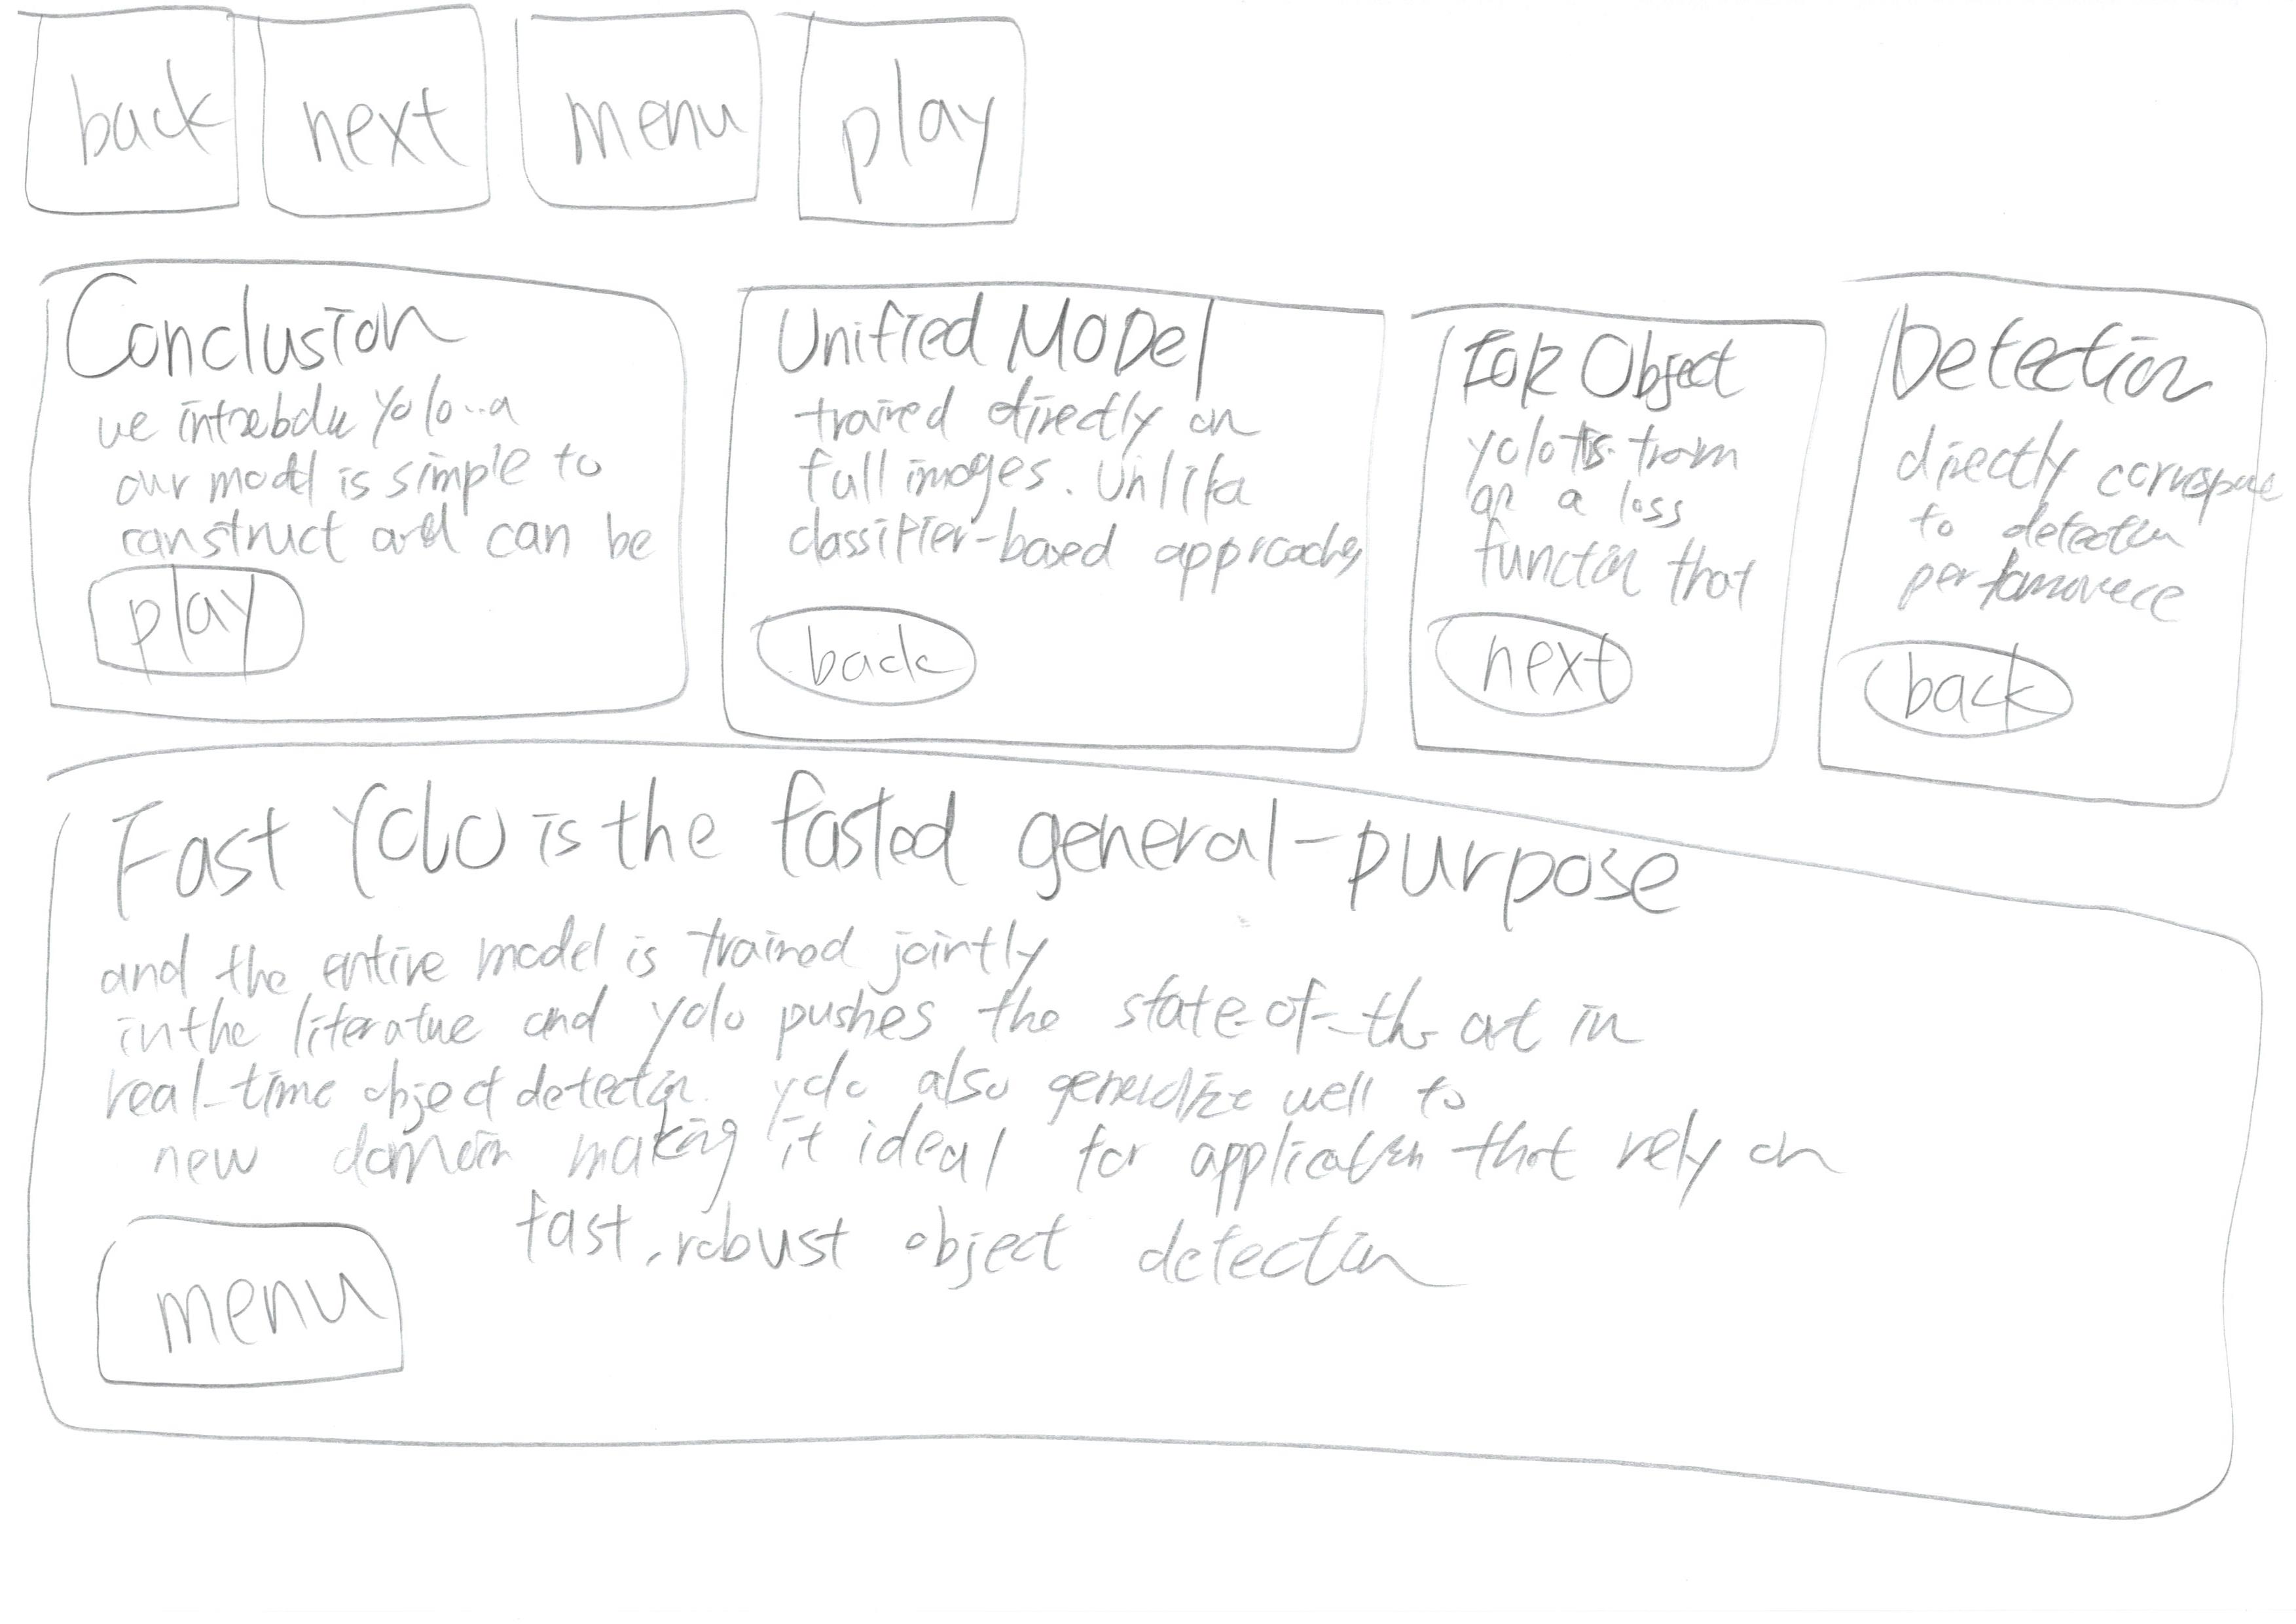 back next menu play
Conclusion
we introbdu yolo..a
our model is simple to
construct and can be
play
Unified MODel
trained directly on
full images. Unlike
classifier-based approaches
back
FOR Object
yolo is tram
on a loss
function that
next
Detection
directly
to detection
back
Fast YOLO is the fasted general-purpose
and the entire model is trained jointly
in the literatue and yolo pushes the state-of-the art in
real-time object detection. yolo also generalize well to
new domain making it ideal for application that rely on
fast, robust object detection
menu